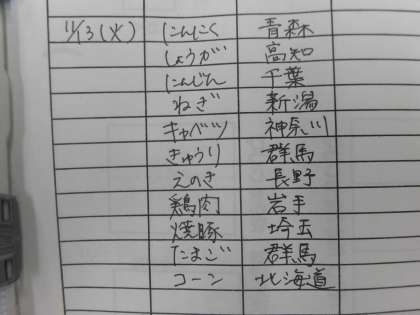 11/13(火) にんにく 青森
しょうが 高知
にんじん 千葉
ねぎ 新潟
キャベツ 神奈川
きゅうり 群馬
えのき 長野
鶏肉 岩手
焼豚 埼玉
たまご 群馬
コーン 北海道